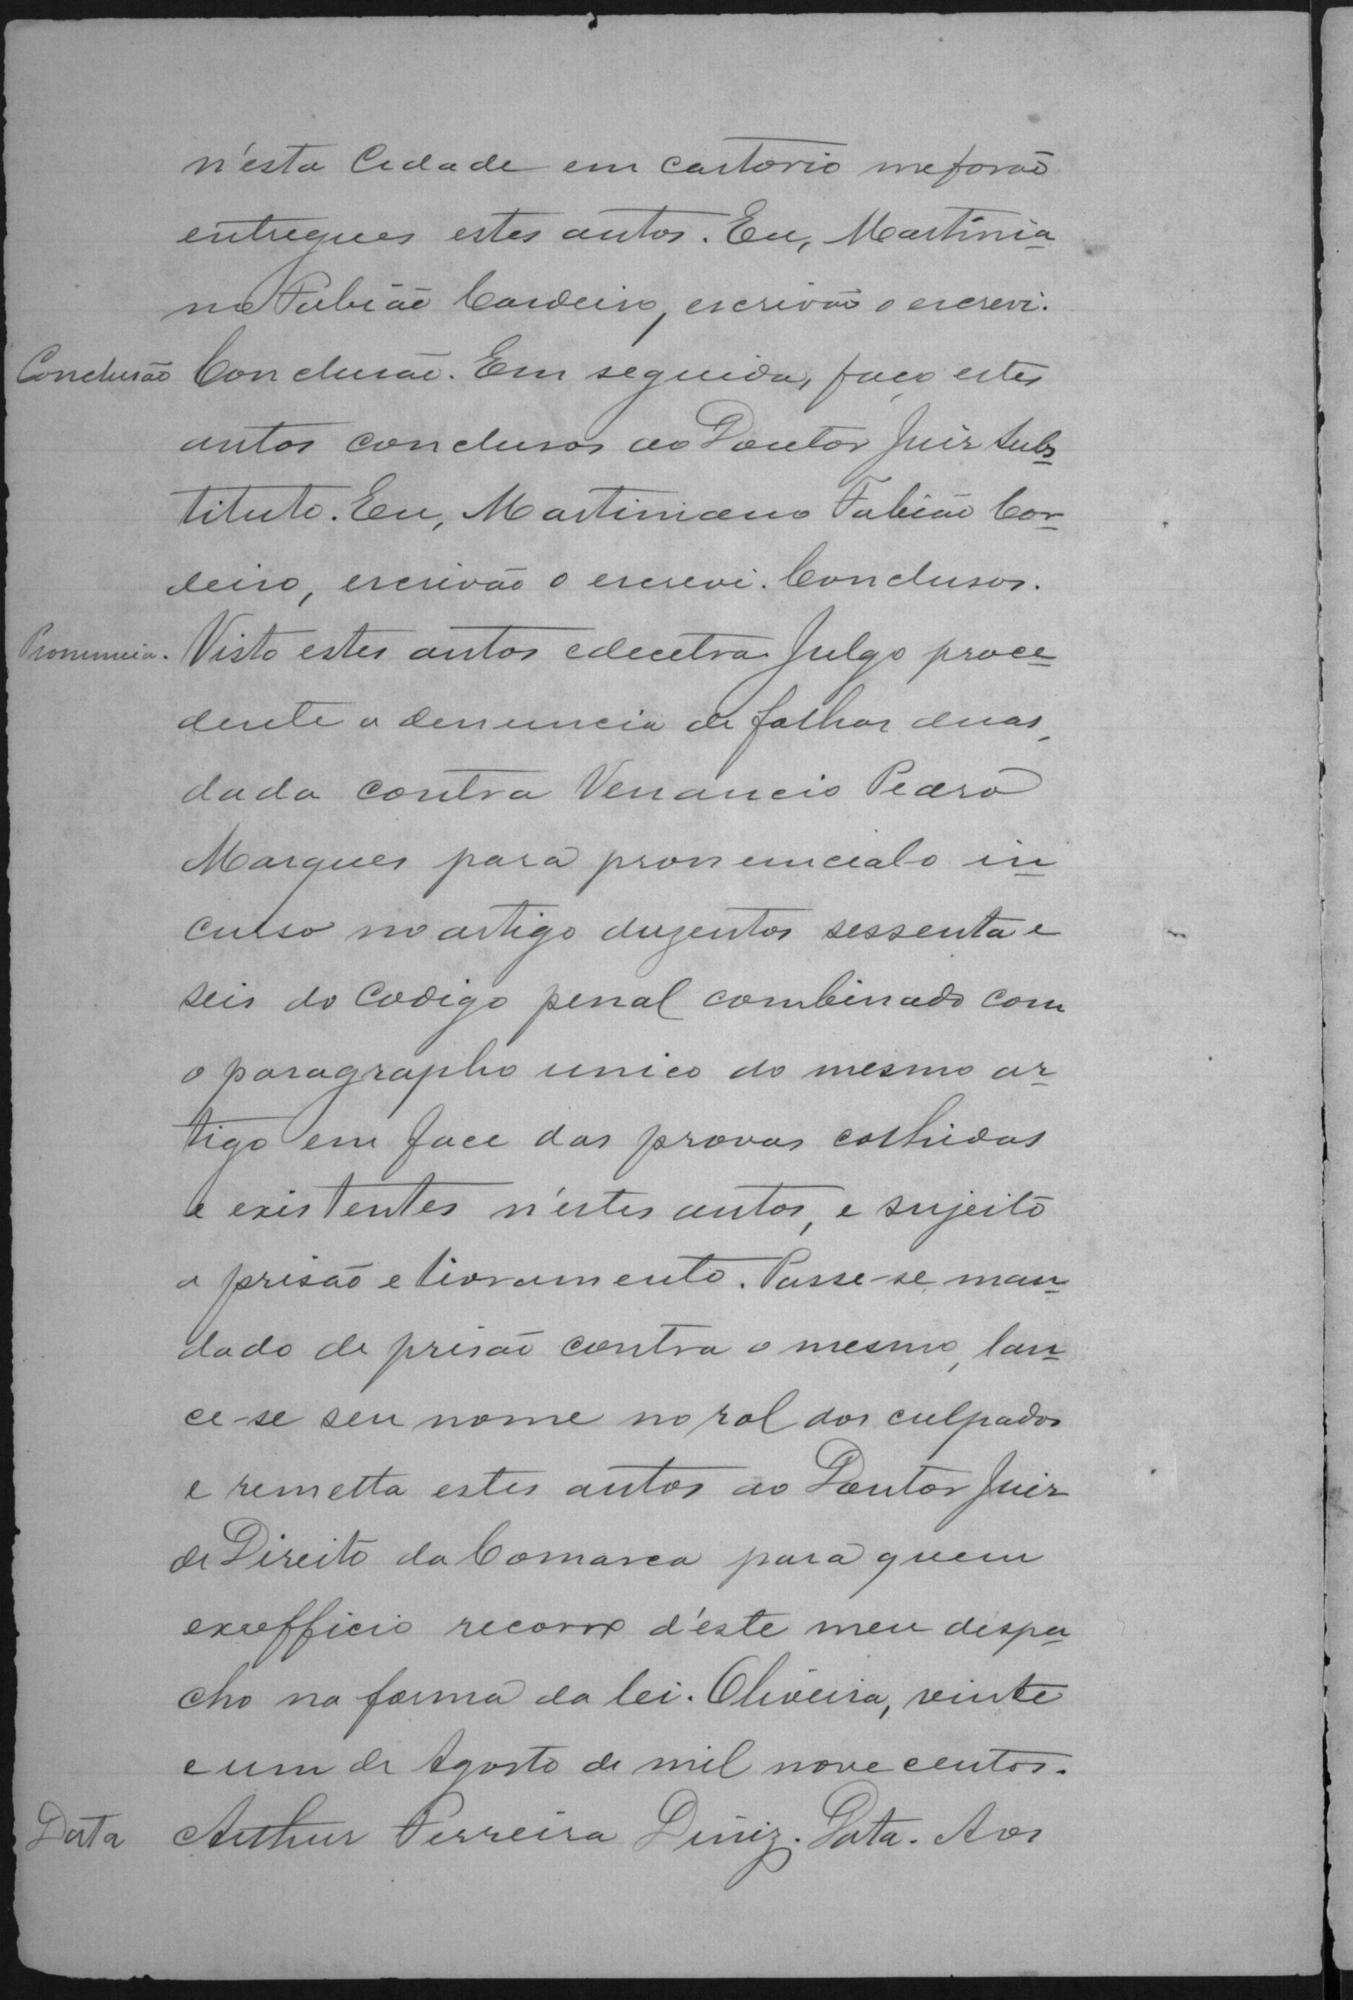 n'esta Cidade em cartorio me forão
entregues estes autos. Eu, Martinia-
no Fabião Cordeiro, escrivão o escrevi.
Conclusão Conclusão. Em seguida, faço estes
autos conclusos ao Doutor Juiz Subs-
tituto. Eu, Martiniano Fabião Cor-
deiro, escrivão o escrevi. Conclusos.
Pronuncia. Visto estes autos etcetra. Julgo proce-
dente a denuncia de folhas duas,
dada contra Venancio Pedro
Marques para pronuncialo in-
curso no artigo duzentos sessenta e
seis do Codigo penal combinado com
o paragrapho unico do mesmo ar-
tigo em face das provas colhidas
e existentes n'estes autos, e sujeito
a prisão e livramento. Passe-se man-
dado de prisão contra o mesmo, lan-
ce-se seu nome no rol dos culpados
e remetta estes autos ao Doutor Juiz
de Direito da Comarca para quem
exofficio recorro d'este meu despa-
cho na forma da lei. Oliveira, vinte
e um de Agosto de mil nove centos.
Data Arthur Ferreira Diniz. Data. Aos